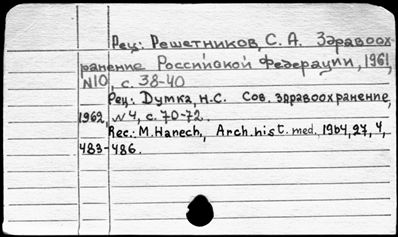 Рец: Решетников, С. А. Здравоох-
ранение Российской Федерации, 1961,
N10, с. 38-40
Рец: Думка, Н.С. Сов. здравоохранение,
1962, N4, с. 70-72.
Rec.: M. Hanech, Arch. hist. med. 1964, 27, 4,
483-486.